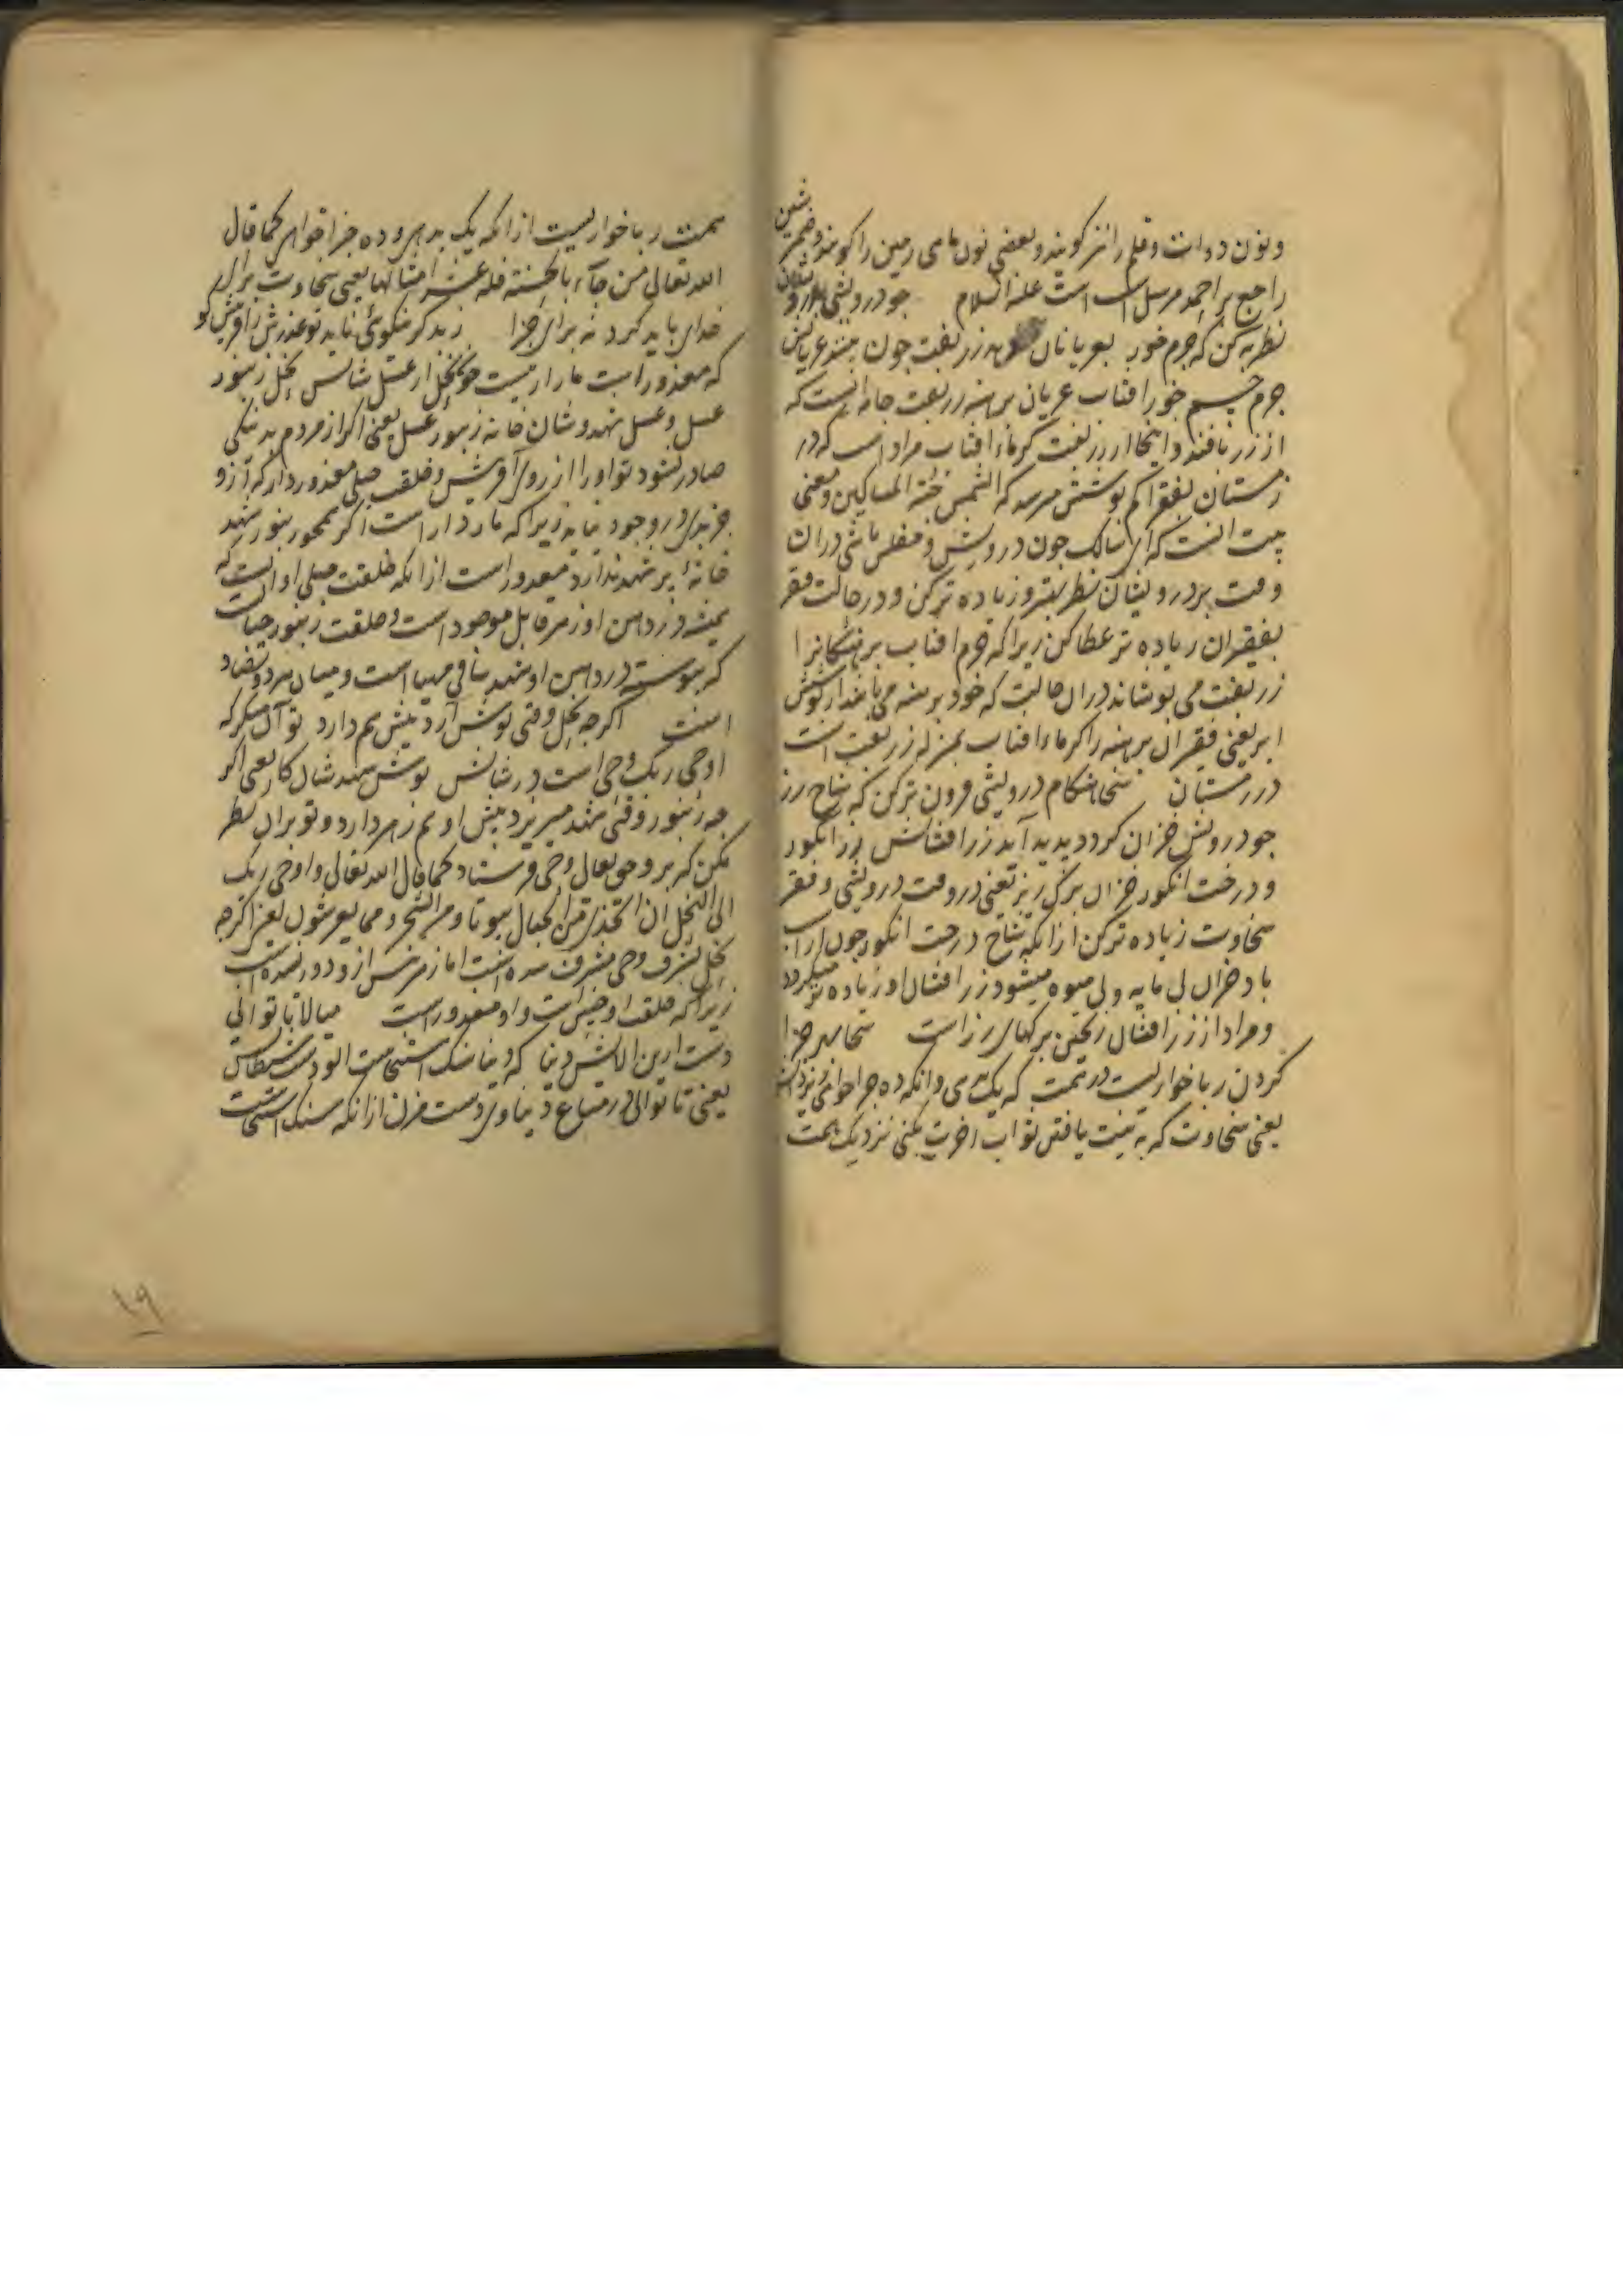 ونون دوات وقلم را نیز کویند وبعضی نون ماهی زمین را کویند وضمیر شین
راجع بر احمد مرسل است علیه السلام چو درویشی بدرویشان
نظر به کن که قرص خور بعریانان دهد زربفت چون بیند عریانش
جرم جسم خور افتاب عریان برهنه زربفت جامه ایست که
از زر بافند و اینجا از زربفت کرماء افتاب مراد است که در
زمستان بفقرا کم پوشش میرسد که الشمس المساکین ومعنی
بیت انست که ای سالک چون درویش و مفلس باشی دران
وقت بر درویشان نظر بهتر و زیاده تر کن و در حالت فقر
بفقیران زیاده تر عطا کن زیرا که جرم افتاب برهنکانرا
زربفت می پوشاند دران حالت که خود برهنه می باشد از پوشش
ابر یعنی فقیران برهنه را کرماء افتاب بمنزله زربفت است
در زمستان سخا هنکام درویشی فزون تر کن که شاخ رز
چو درویش خزان کردد پدید آید زر افشانش رز انکور
و درخت انکور خزان برک ریز یعنی در وقت درویشی و فقر
سخاوت زیاده تر کن ازانکه شاخ درخت انکور چون از آسیب
باد خزان بی مایه و بی میوه میشود زر افشان او زیاده تر میکردد
و مراد از زر افشان ریختن برکهای رز است سخا بهر جزا
کردن ربا خواریست در همت که یک بدهی وانکه ده جزا خواهی ز یزدانش
یعنی سخاوت که به نیت یافتن ثواب اخرت بکنی نزدیک همت
همت ربا خواریست ازانکه یک بدهی و ده جزا خواهی کما قال
الله تعالی من جآء بالحسنة فله عشر امثالها یعنی سخاوت برای
خدای باید کرد نه برای جزا ز بد کر نیکوئی ناید تو عذرش ز افرینش نه
که معذور است مار ار نیست چون نحل از عسل شانش نحل زنبور
عسل و عسل شهد و شان خانه زنبور عسل یعنی اکر از مردم بد نیکی
صادر نشود تو او را از روی آفرینش و خلقت جبلی معذور دار که ازو
جز بدی در وجود نیاید زیرا که مار را است اکر همچو زنبور شهد
خانهٔ پر شهد ندارد معذور است ازانکه خلقت جبلی او انست که
همیشه در دهن او زهر قاتل موجود است و خلقت زنبور چنانست
که پیوسته در دهن او شهد شافی مهیا است و میان هر دو تضاد
است اکرچه نحل وقتی نوش آرد نیش هم دارد تو آن منکر که
اوحی ربک وحی است در شانش نوش شهد شان کار یعنی اکر
چه زنبور وقتی شهد میریزد نیش او هم زهر دارد و تو بران نظر
مکن که برو حق تعالی وحی فرستاد کما قال الله تعالی و اوحی ربک
الی النحل ان اتخذی من الجبال بیوتا ومن الشجر ومما یعرشون یعنی اکرچه
نحل بشرف وحی مشرف شده است اما زهر نیش ازو دور نشده است
زیرا که خلقت او چنین است و او معذور است میالا تا توانی
دست ازین الایش دنیا که دنیا سنک استنجاست الودهٔ شیطانش
یعنی تا توانی در متاع دنیاوی دست مزن ازانکه سنک استنجاست
۱۹